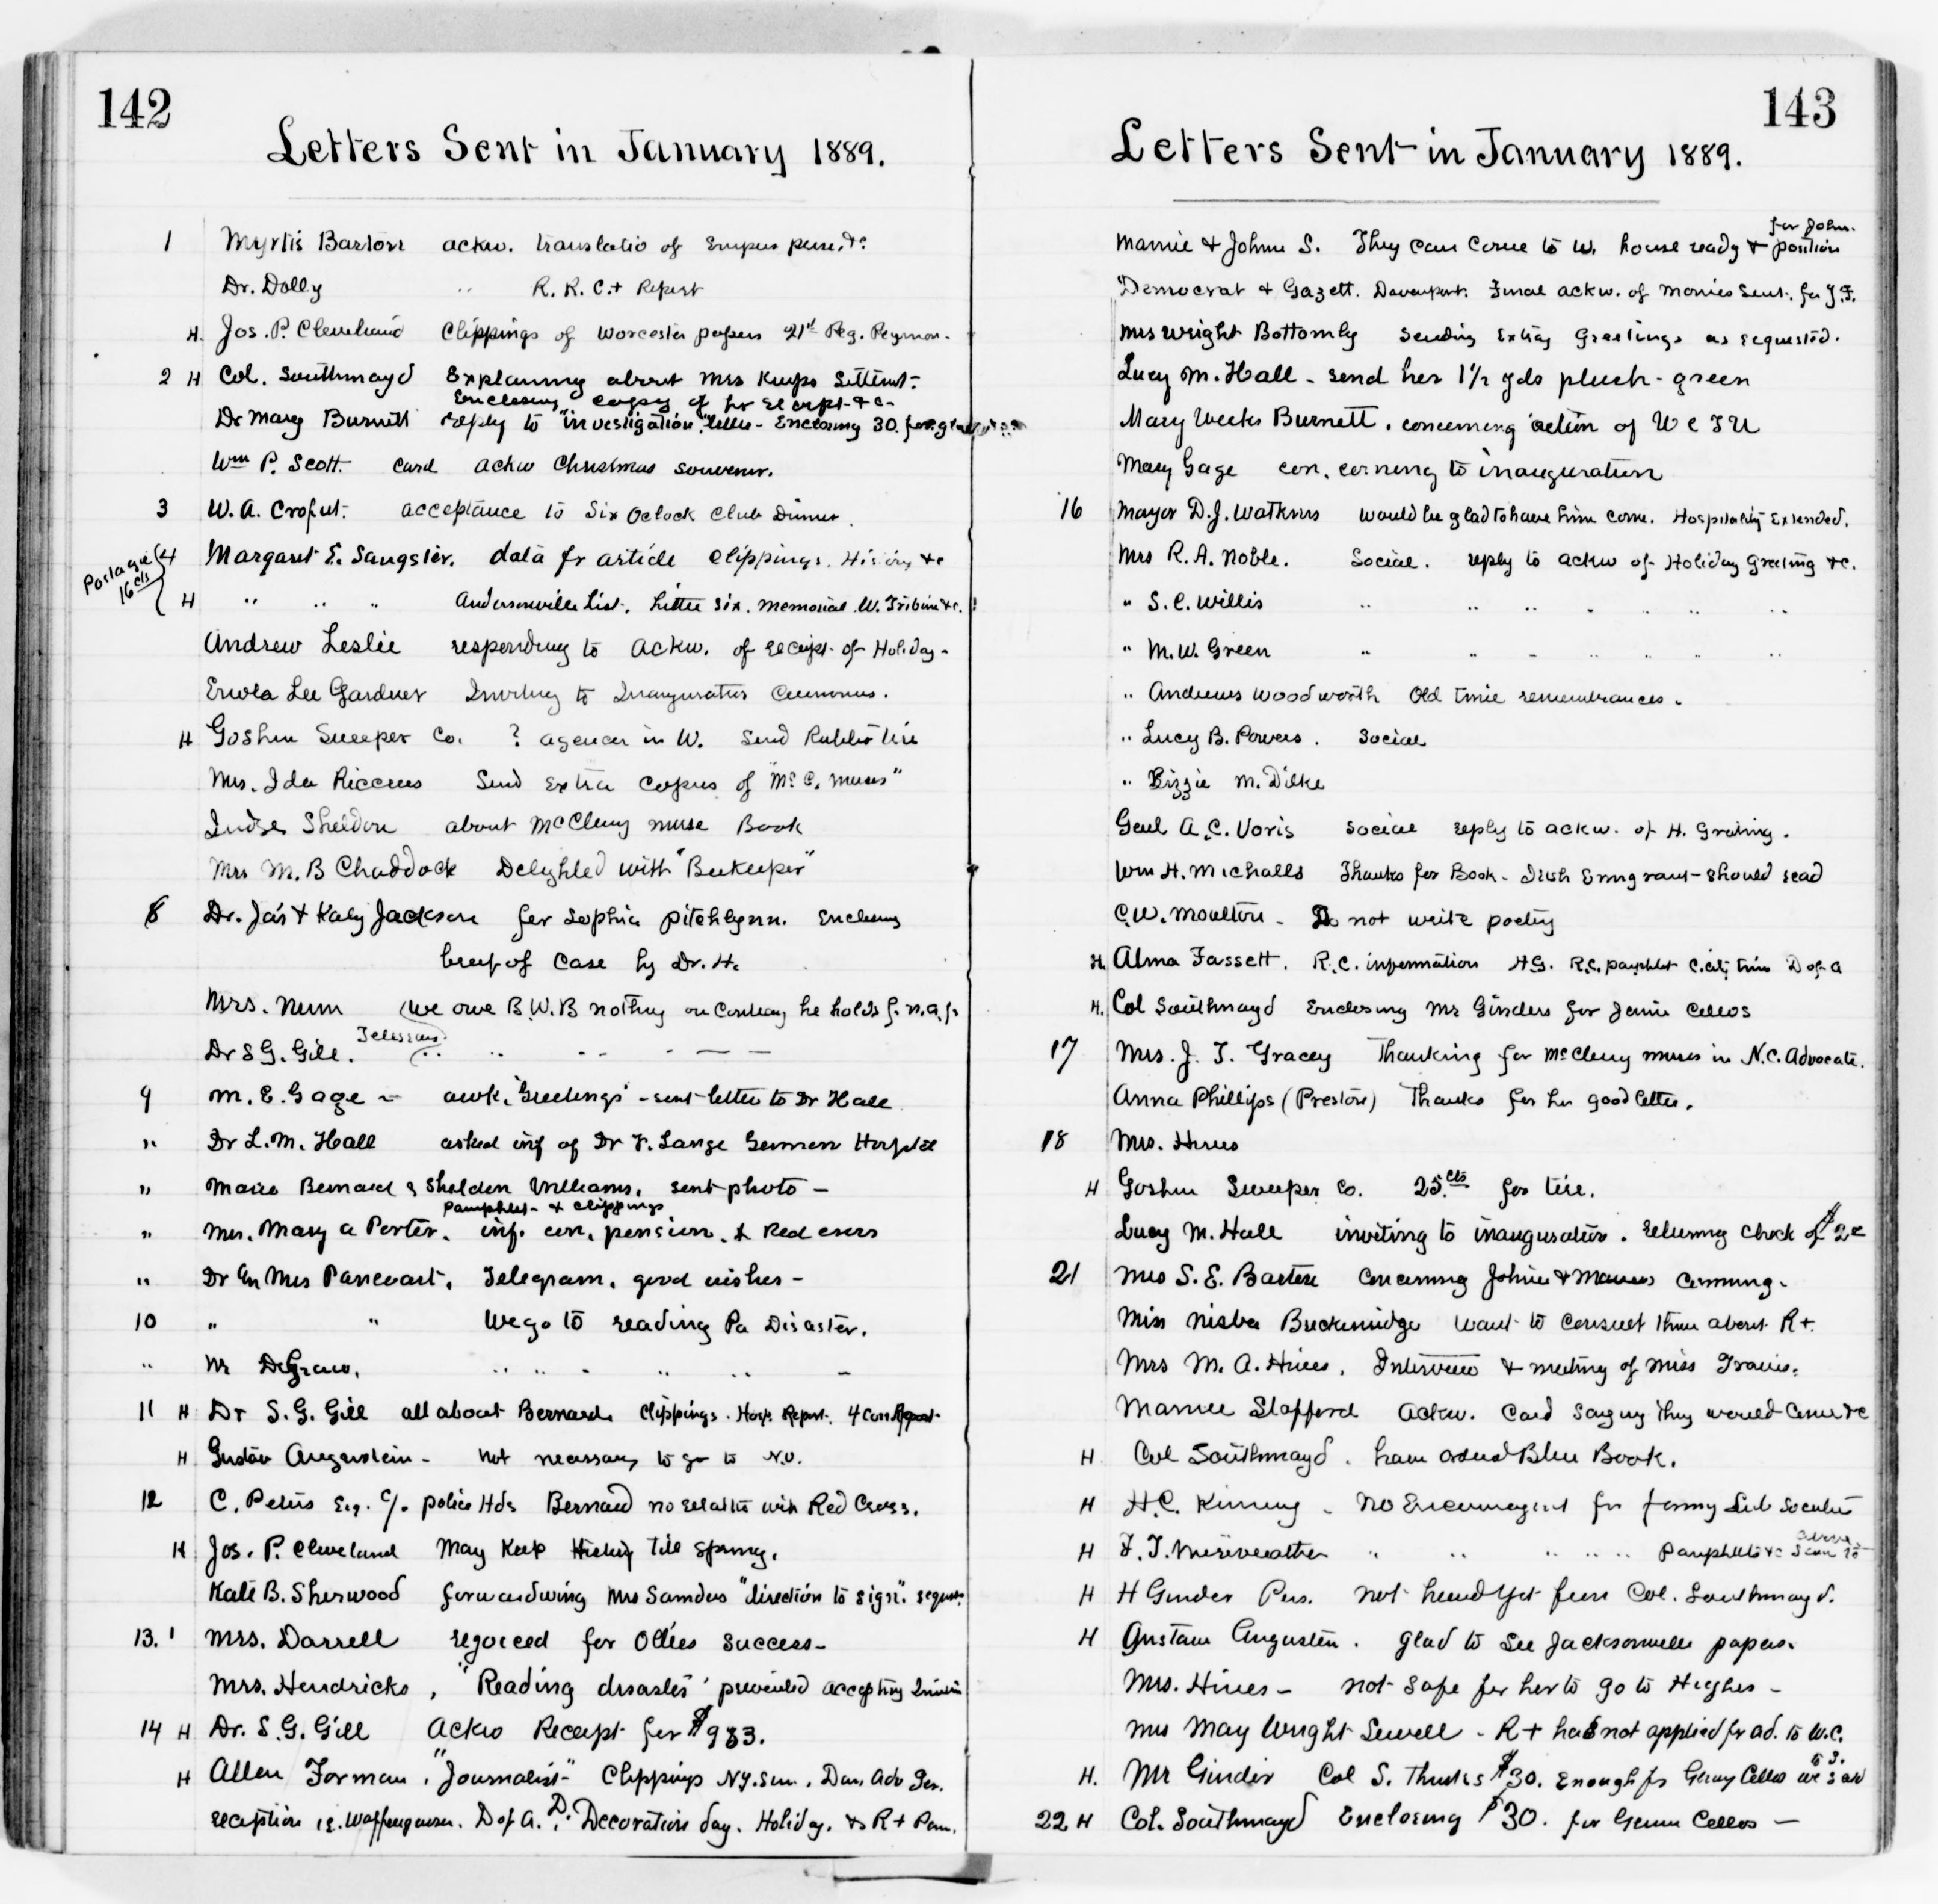 142
Letters Sent in January 1889.
1 Myrtis Barton ackw. translatio of Empress &c
Dr. Dolly " R. R. C.+ Report
H. Jos. P. Cleveland Clippings of Worcester papers 21st Reg.
2 H Col. Southmayd Explaining about Mrs
Enclosing copy of her &c-
Dr Mary Burnett reply to "investigation" letter - Enclosing 30. for
Wm P. Scott. card ackw Christmas souvenir.
3 W. A. Crofut. acceptance to Six Oclock Club Dinner.
4 Margaret E. Sangster. data fr article Clippings. History &c
Postage 16 cts
H " " " Andersonville List. Letter six. Memorial. W. Tribune &c.
Andrew Leslie responding to Ackw. of receipt of Holiday-
Lee Gardner Inviting to Inauguration Ceremonies.
H Goshen Sweeper Co. ? agencer in W. Send Rubber tire
Mrs. Ida Riccius Send extra copies of "Mc C. Nurses"
Judge Sheldon about McCleny nurse Book
Mrs M. B Chaddock Delighted with "Beekeeper"
8 Dr. Jas & Katy Jackson for Sophia Pitchlynn. Enclosing
brief of case by Dr. H.
Mrs. Nunn (We owe B. W. B nothing on he holds
Dr S G. Gill. Telegram " " - - - — —
9 M. E. Gage ~ awk. "Greetings" - sent letter to Dr Hall
" Dr L. M. Hall asked inf of Dr F. Lange German Hospital
" Bernard & Sheldon Williams. sent photo -
Pamphlet - & clippings
" Mrs. Mary A Porter. inf. con. pension. & Red cross
" Dr Mrs Pancoast. Telegram. good wishes -
10 " " We go to reading Pa Disaster.
" DeGraw. " " - " " -
11 H Dr S. G. Gill all about Bernard. Clippings. Hosp. Report. 4 Con. Report-
H Gustav - not necessary to go to N.O.
12 C. Peters Esq. c/o police Hds Bernard no relation with Red Cross.
H Jos. P. Cleveland May Keep till spring.
Kate B. Sherwood forwardwing Mrs Sanders "direction to sign".
13. Mrs. Darrell rejoiced for Ollies success-
Mrs. Hendricks, "Reading disaster" prevented accepting
14 H Dr. S. G. Gill Ackw Receipt for $983.
H Allen Forman. "Journalist" Clippings N.Y. Sun. Dan. Adv
reception D of A. D. Decoration day. Holiday. & R + Pam.
143
Letters Sent in January 1889.
Mamie & Johnn S. They can come to W. house ready & position
for John.
Democrat & Gazett. Davenport. Final ackw. of monies sent. for Y.F.
Mrs Wright Bottomly sending Extra Greetings as requested.
Lucy M. Hall - send her 1½ yds plush - green
Mary Weeks Burnett. concerning action of W C T U
Mary Gage con. coming to inauguration
16 Mayor D. J. Watkins would be glad to have him come. Hospitality Extended.
Mrs R. A. Noble. Social. reply to ackw of Holiday greeting &c.
" S. C. Willis " " " " " " "
" M. W. Green " " - " " " "
" Andrews Woodworth Old time remembrances.
" Lucy B. Powers. Social
" Lizzie M. Dilke
Genl A. C. Voris social reply to ackw. of H. Greting.
Wm H. Michalls Thanks for Book - Irish Emigrant - should read
C. W. Moulton - Do not write poetry
H. Alma Fassett. R. C. information H G. R. C. pamphlet D of A
H. Col Southmayd Enclosing Mr Ginders for Cellos
17 Mrs. J. T. Gracey Thanking for McCleny nurses in N. C. Advocate.
Anna Phillips (Preston) Thanks for her good letter.
18 Mrs. Hines
H Goshen Sweeper Co. 25 cts for tire.
Lucy M. Hall inviting to inauguration. returning check of $2
21 Mrs S. E. Barton Concerning Johnie & Mamies comming.
Miss Nisba Buckenridge want to consult them about R+.
Mrs M. A. Hines. Interview & meeting of Miss Travis.
Mamie Stafford Ackw. Card saying they would come &c
H Col Southmayd. have ordered Blue Book.
H H. C. - No Encouragment for forming Sub Societies
H F. T. Meriweather " " " " " Pamphlets &c
H H Ginder Pers. Not heard yet from Col. Southmayd.
H Gustave. glad to see Jacksonville papers.
Mrs. Hines - not safe for her to go to Hughes -
Mrs May Wright Sewell - R + has not applied for ad. to W.C.
H. Mr Ginder Col S. Thinks $30. enough for Cellos
22 H Col. Southmayd Enclosing $30. for Cellos —